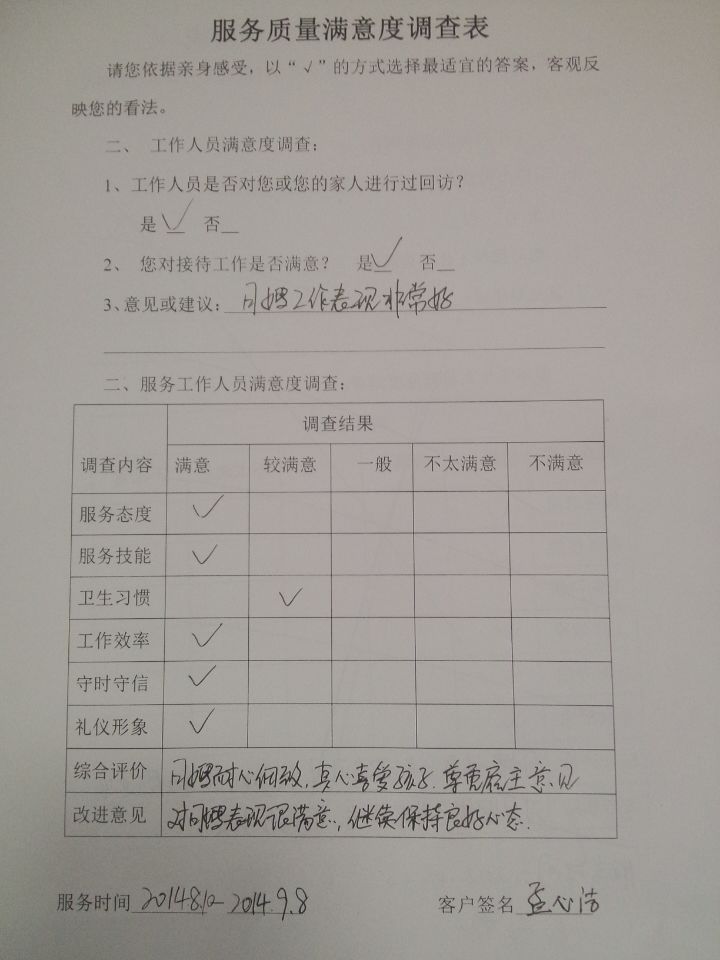 服务质量满意度调查表
请您依据亲身感受，以“√”的方式选择最适宜的答案，客观反
映您的看法。
二、 工作人员满意度调查：
1、工作人员是否对您或您的家人进行过回访？
是√ 否__
2、 您对接待工作是否满意？ 是√ 否__
3、意见或建议：月嫂工作表现非常好
二、服务工作人员满意度调查：
调查结果
调查内容 满意 较满意 一般 不太满意 不满意
服务态度 √
服务技能 √
卫生习惯 √
工作效率 √
守时守信 √
礼仪形象 √
综合评价 月嫂耐心细致,真心喜爱孩子.尊重雇主意见
改进意见 对月嫂表现很满意,继续保持良好心态.
服务时间 2014.8.12-2014.9.8 客户签名